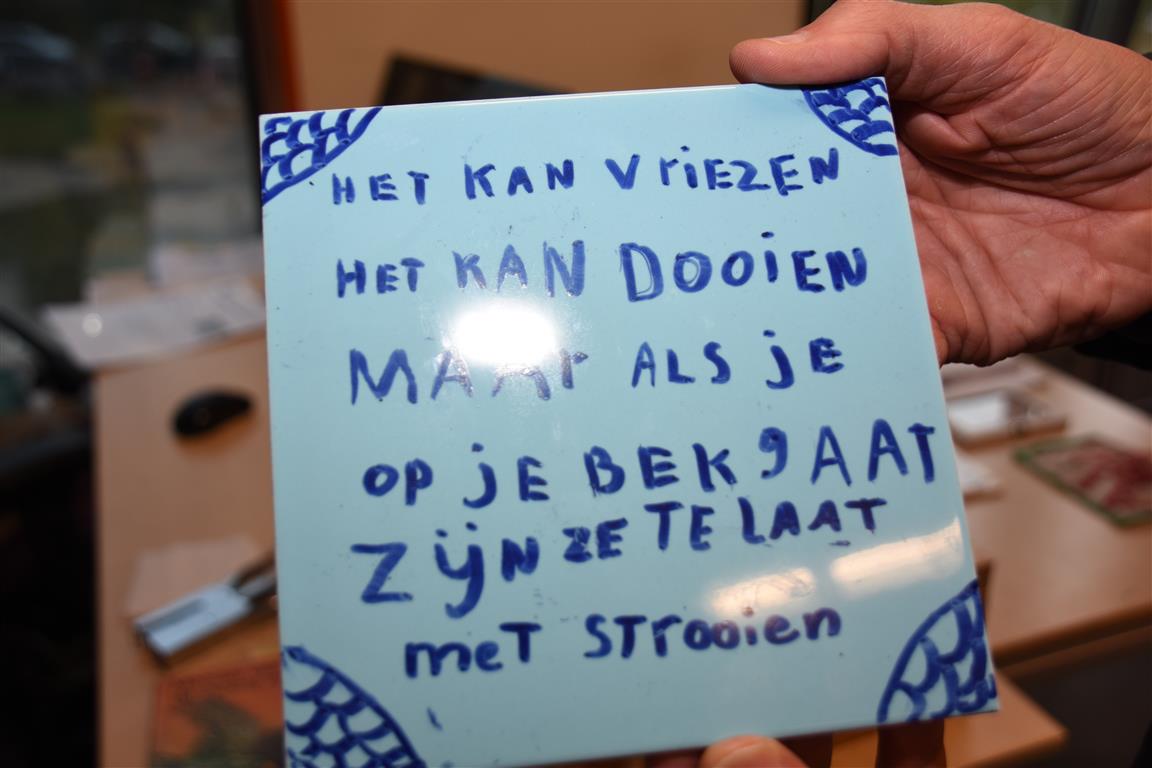 HET KAN VriEZEN
HET KAN DOOiEN
MAAr ALS jE
OP jE BEK gAAT
ZijN ZE TE LAAT
meT STrooien